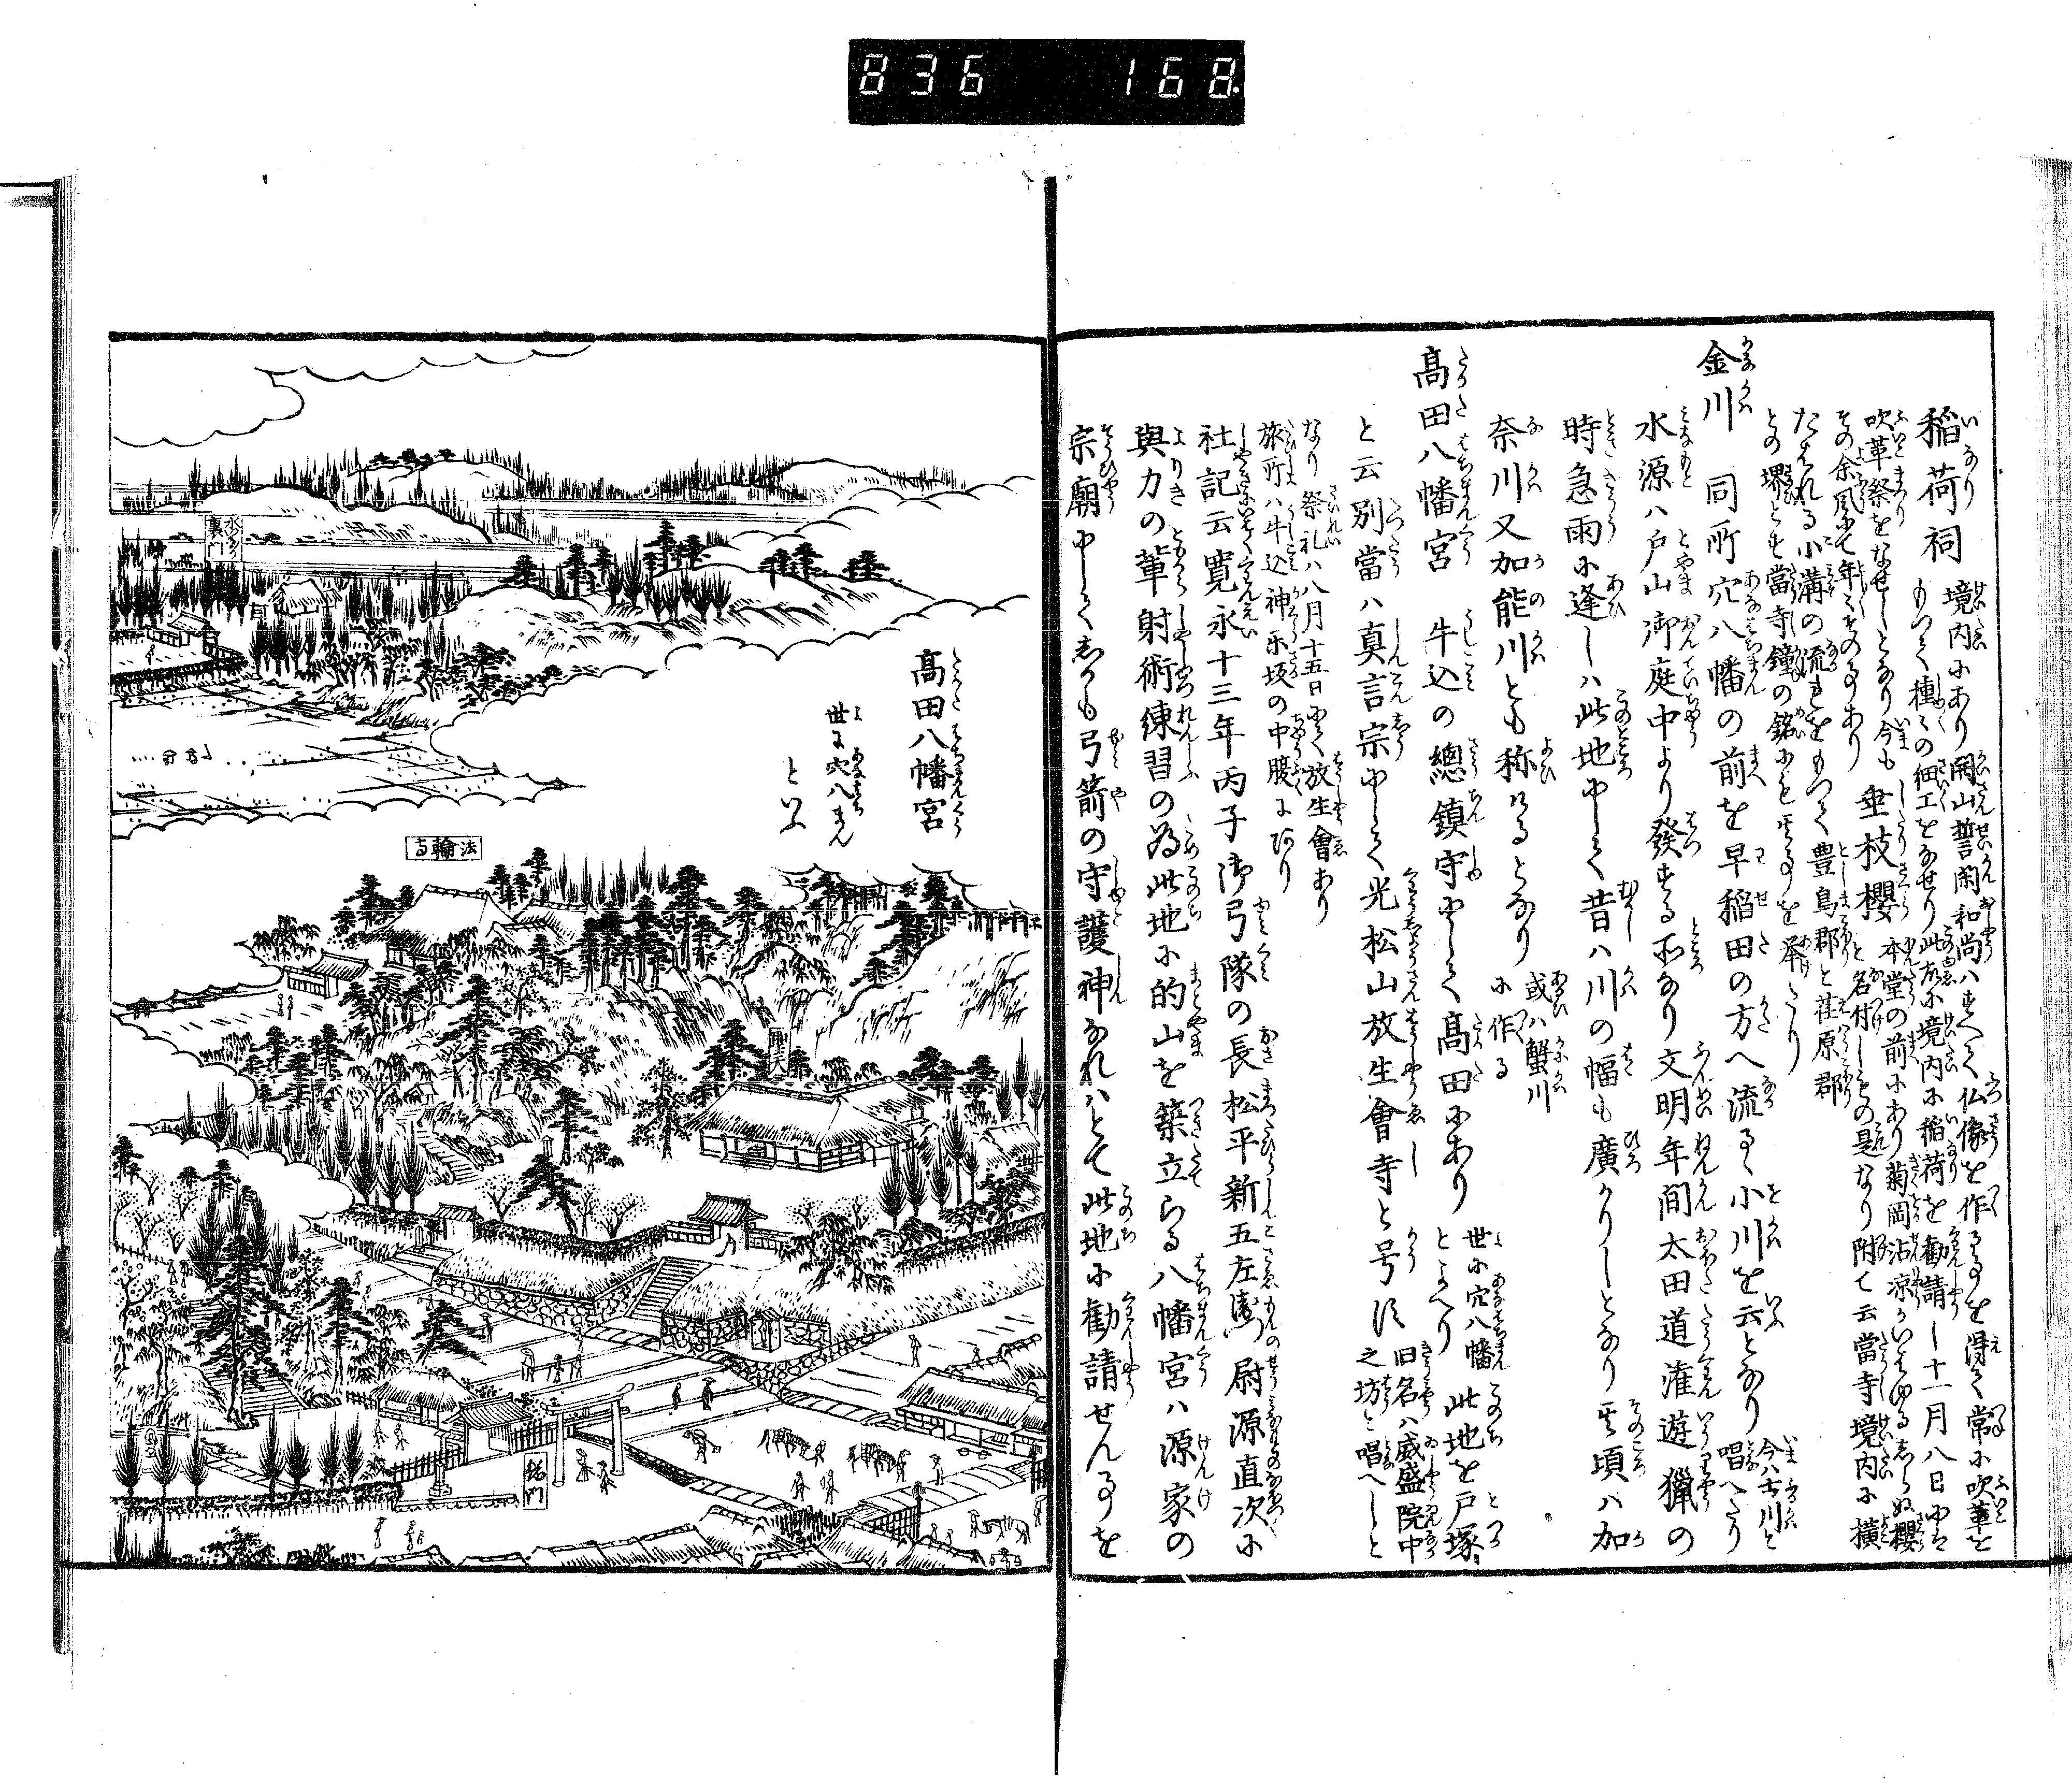 836 168
稲荷祠 境内にあり開山誓閑和尚ハすへて仏像を作る事を得て常に吹革を
もつて種々の細工をなせり此故に境内に稲荷を勧請し十一月八日にハ
吹革祭をなせしとなり今も
その余風にて年々その事あり
垂枝櫻 本堂の前にあり菊岡沾凉かいはゆるしらぬ櫻
と名付しもの是なり附て云當寺境内に横
たはれる小溝の流をもつて豊島郡と荏原郡
との堺とす當寺鐘の銘にも其事を挙たり
金川 同所穴八幡の前を早稲田の方へ流るゝ小川を云となり 今ハ古川と
唱へたり
水源ハ戸山御庭中より發する所なり文明年間太田道潅遊獵の
時急雨に逢しハ此地にして昔ハ川の幅も廣かりしとなり其頃ハ加
奈川又加能川とも称けるとなり 或ハ蟹川
に作る
髙田八幡宮 牛込の總鎮守にして髙田にあり 世に穴八幡
とよへり
此地を戸塚
と云別當ハ真言宗にして光松山放生會寺と号す 旧名ハ威盛院中
之坊と唱へしと
なり 祭礼ハ八月十五日にて放生會あり
旅所ハ牛込神楽坂の中腹にあり
社記云寛永十三年丙子御弓隊の長松平新五左衛門尉源直次に
與力の輩射術練習の為此地に的山を築立らる八幡宮ハ源家の
宗廟にしてしかも弓箭の守護神なれハとて此地に勧請せん事を
髙田八幡宮
世に穴八まん
といふ
水いなり
裏門
法輪寺
総門